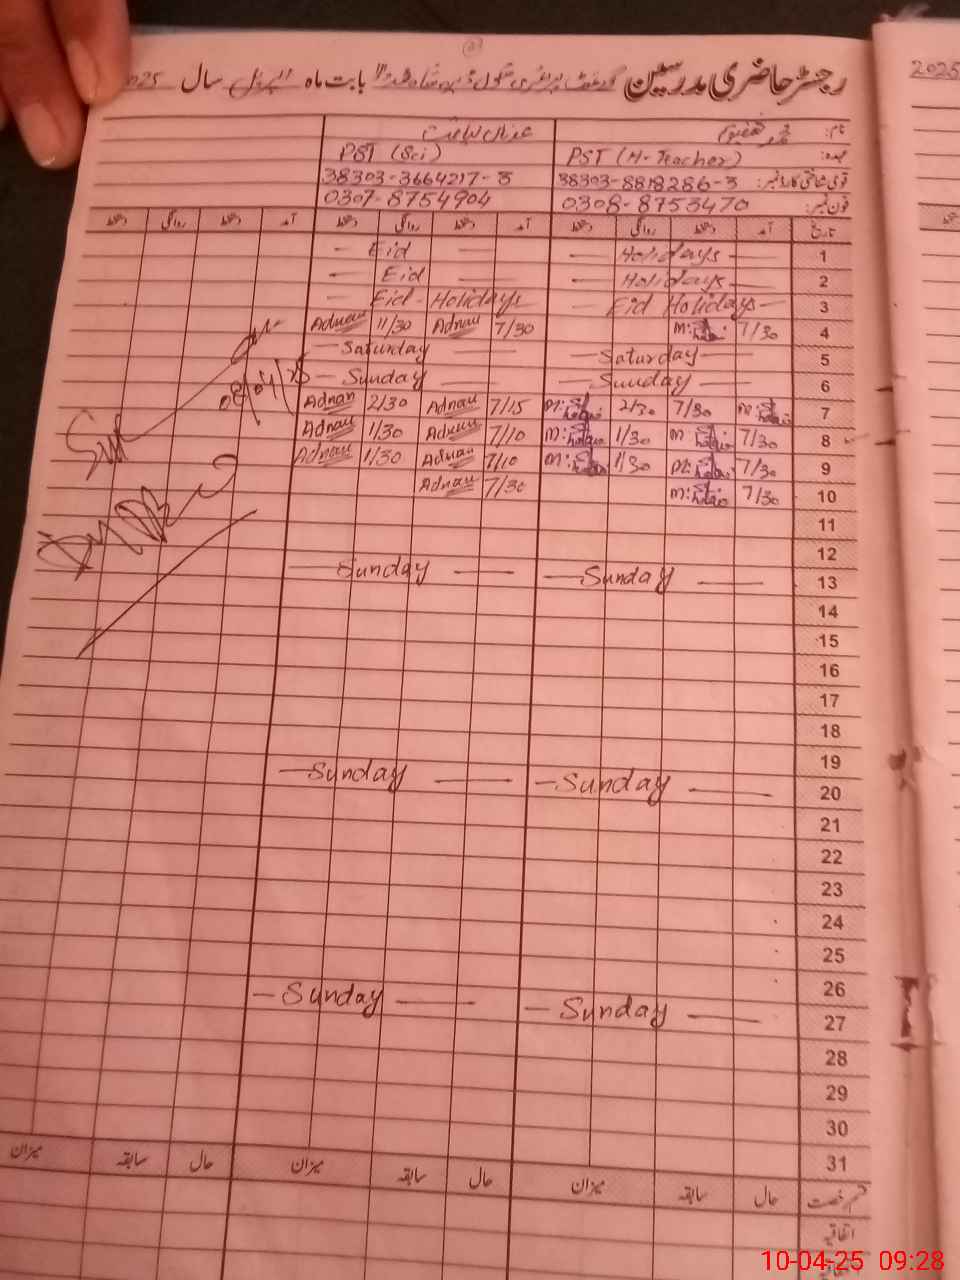 رجسٹر حاضری مدرسین گورنمنٹ پرائمری سکول بابت ماہ اپریل سال 2025
2025
نام:
عہدہ: PST (H-Teacher) PST (Sci)
قومی شناختی کارڈ نمبر: 38303-8818286-3 38303-3664217-3
فون نمبر: 0308-8753470 0307-8754904
تاریخ آمد دستخط روانگی دستخط آمد دستخط روانگی دستخط آمد دستخط روانگی دستخط
— Eid — — Holidays — 1
— Eid — — Holidays — 2
— Eid - Holidays — Eid Holidays — 3
Adnan 11/30 Adnan 7/30 7/30 4
— Saturday — — Saturday — 5
— Sunday — — Sunday — 6
Adnan 2/30 Adnan 7/15 2/30 7/30 7
Adnan 1/30 Adnan 7/10 1/30 7/30 8
Adnan 1/30 Adnan 7/10 1/30 7/30 9
Adnan 7/30 7/30 10
08/04/25
11
12
— Sunday — — Sunday — 13
14
15
16
17
18
19
— Sunday — — Sunday — 20
21
22
23
24
25
26
— Sunday — — Sunday — 27
28
29
30
31
حال سابقہ میزان حال سابقہ میزان حال سابقہ میزان
اتفاقیہ
10-04-25 09:28